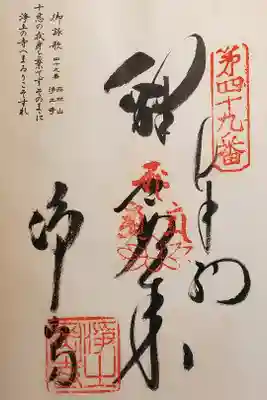 第四十九番
奉納
釋迦如来
浄土寺
御詠歌 四十九番 西林山 浄土寺
十悪の我身を棄てずそのまゝに
浄土の寺へまゐりこそすれ